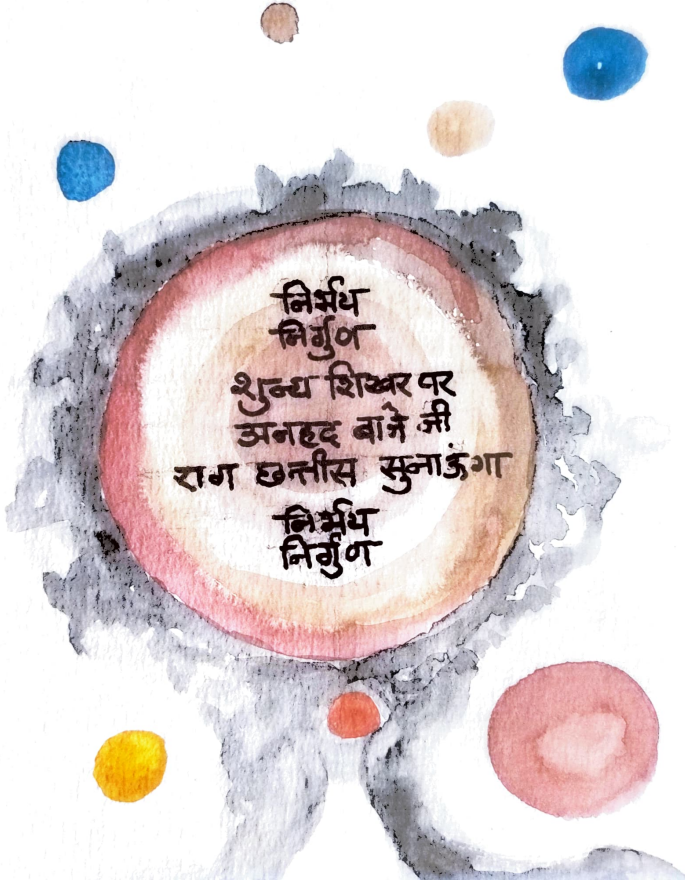 निर्भय
निर्गुण
शुन्य शिखर पर
अनहद बाजे जी
राग छत्तीस सुनाऊंगा
निर्भय
निर्गुण